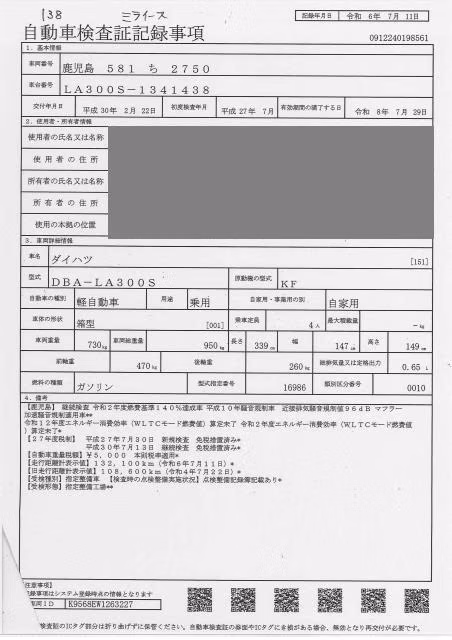 138 ミライース
記録年月日 令和 6年 7月 11日
自動車検査証記録事項 0912240198561
1．基本情報
車両番号 鹿児島 581 ち 2750
車台番号 LA300S－1341438
交付年月日 平成 30年 2月 22日 初度検査年月 平成 27年 7月 有効期間の満了する日 令和 8年 7月 29日
2．使用者・所有者情報
使用者の氏名又は名称
使用者の住所
所有者の氏名又は名称
所有者の住所
使用の本拠の位置
3．車両詳細情報
車名 ダイハツ [151]
型式 DBA－LA300S 原動機の型式 KF
自動車の種別 軽自動車 用途 乗用 自家用・事業用の別 自家用
車体の形状 箱型 [001] 乗車定員 4人 最大積載量 －kg
車両重量 730kg 車両総重量 950kg 長さ 339cm 幅 147cm 高さ 149cm
前軸重 470kg 後軸重 260kg 総排気量又は定格出力 0.65 L
燃料の種類 ガソリン 型式指定番号 16986 類別区分番号 0010
4．備考
【鹿児島】 継続検査 令和２年度燃費基準１４０％達成車 平成１０年騒音規制車 近接排気騒音規制値９６ｄＢ マフラー
加速騒音規制適用車**
令和１２年度エネルギー消費効率（ＷＬＴＣモード燃費値）算定未了 令和２年度エネルギー消費効率（ＷＬＴＣモード燃費値
）算定未了*
【２７年度税制】 平成２７年７月３０日 新規検査 免税措置済み*
平成３０年７月１３日 継続検査 免税措置済み*
【自動車重量税額】￥５，０００ 本則税率適用*
【走行距離計表示値】１３２，１００ｋｍ（令和６年７月１１日）*
【旧走行距離計表示値】１０８，６００ｋｍ（令和４年７月２２日）*
【受検種別】指定整備車 【検査時の点検整備実施状況】点検整備記録簿記載あり*
【受検形態】指定整備工場**
注意事項】
記録事項はシステム登録時点の情報となります
車両ＩＤ K9568EW1263227
検査証のICタグ部分は折り曲げずに保管ください。自動車検査証の券面やICタグにき損がある場合、無効となり再交付が必要です。